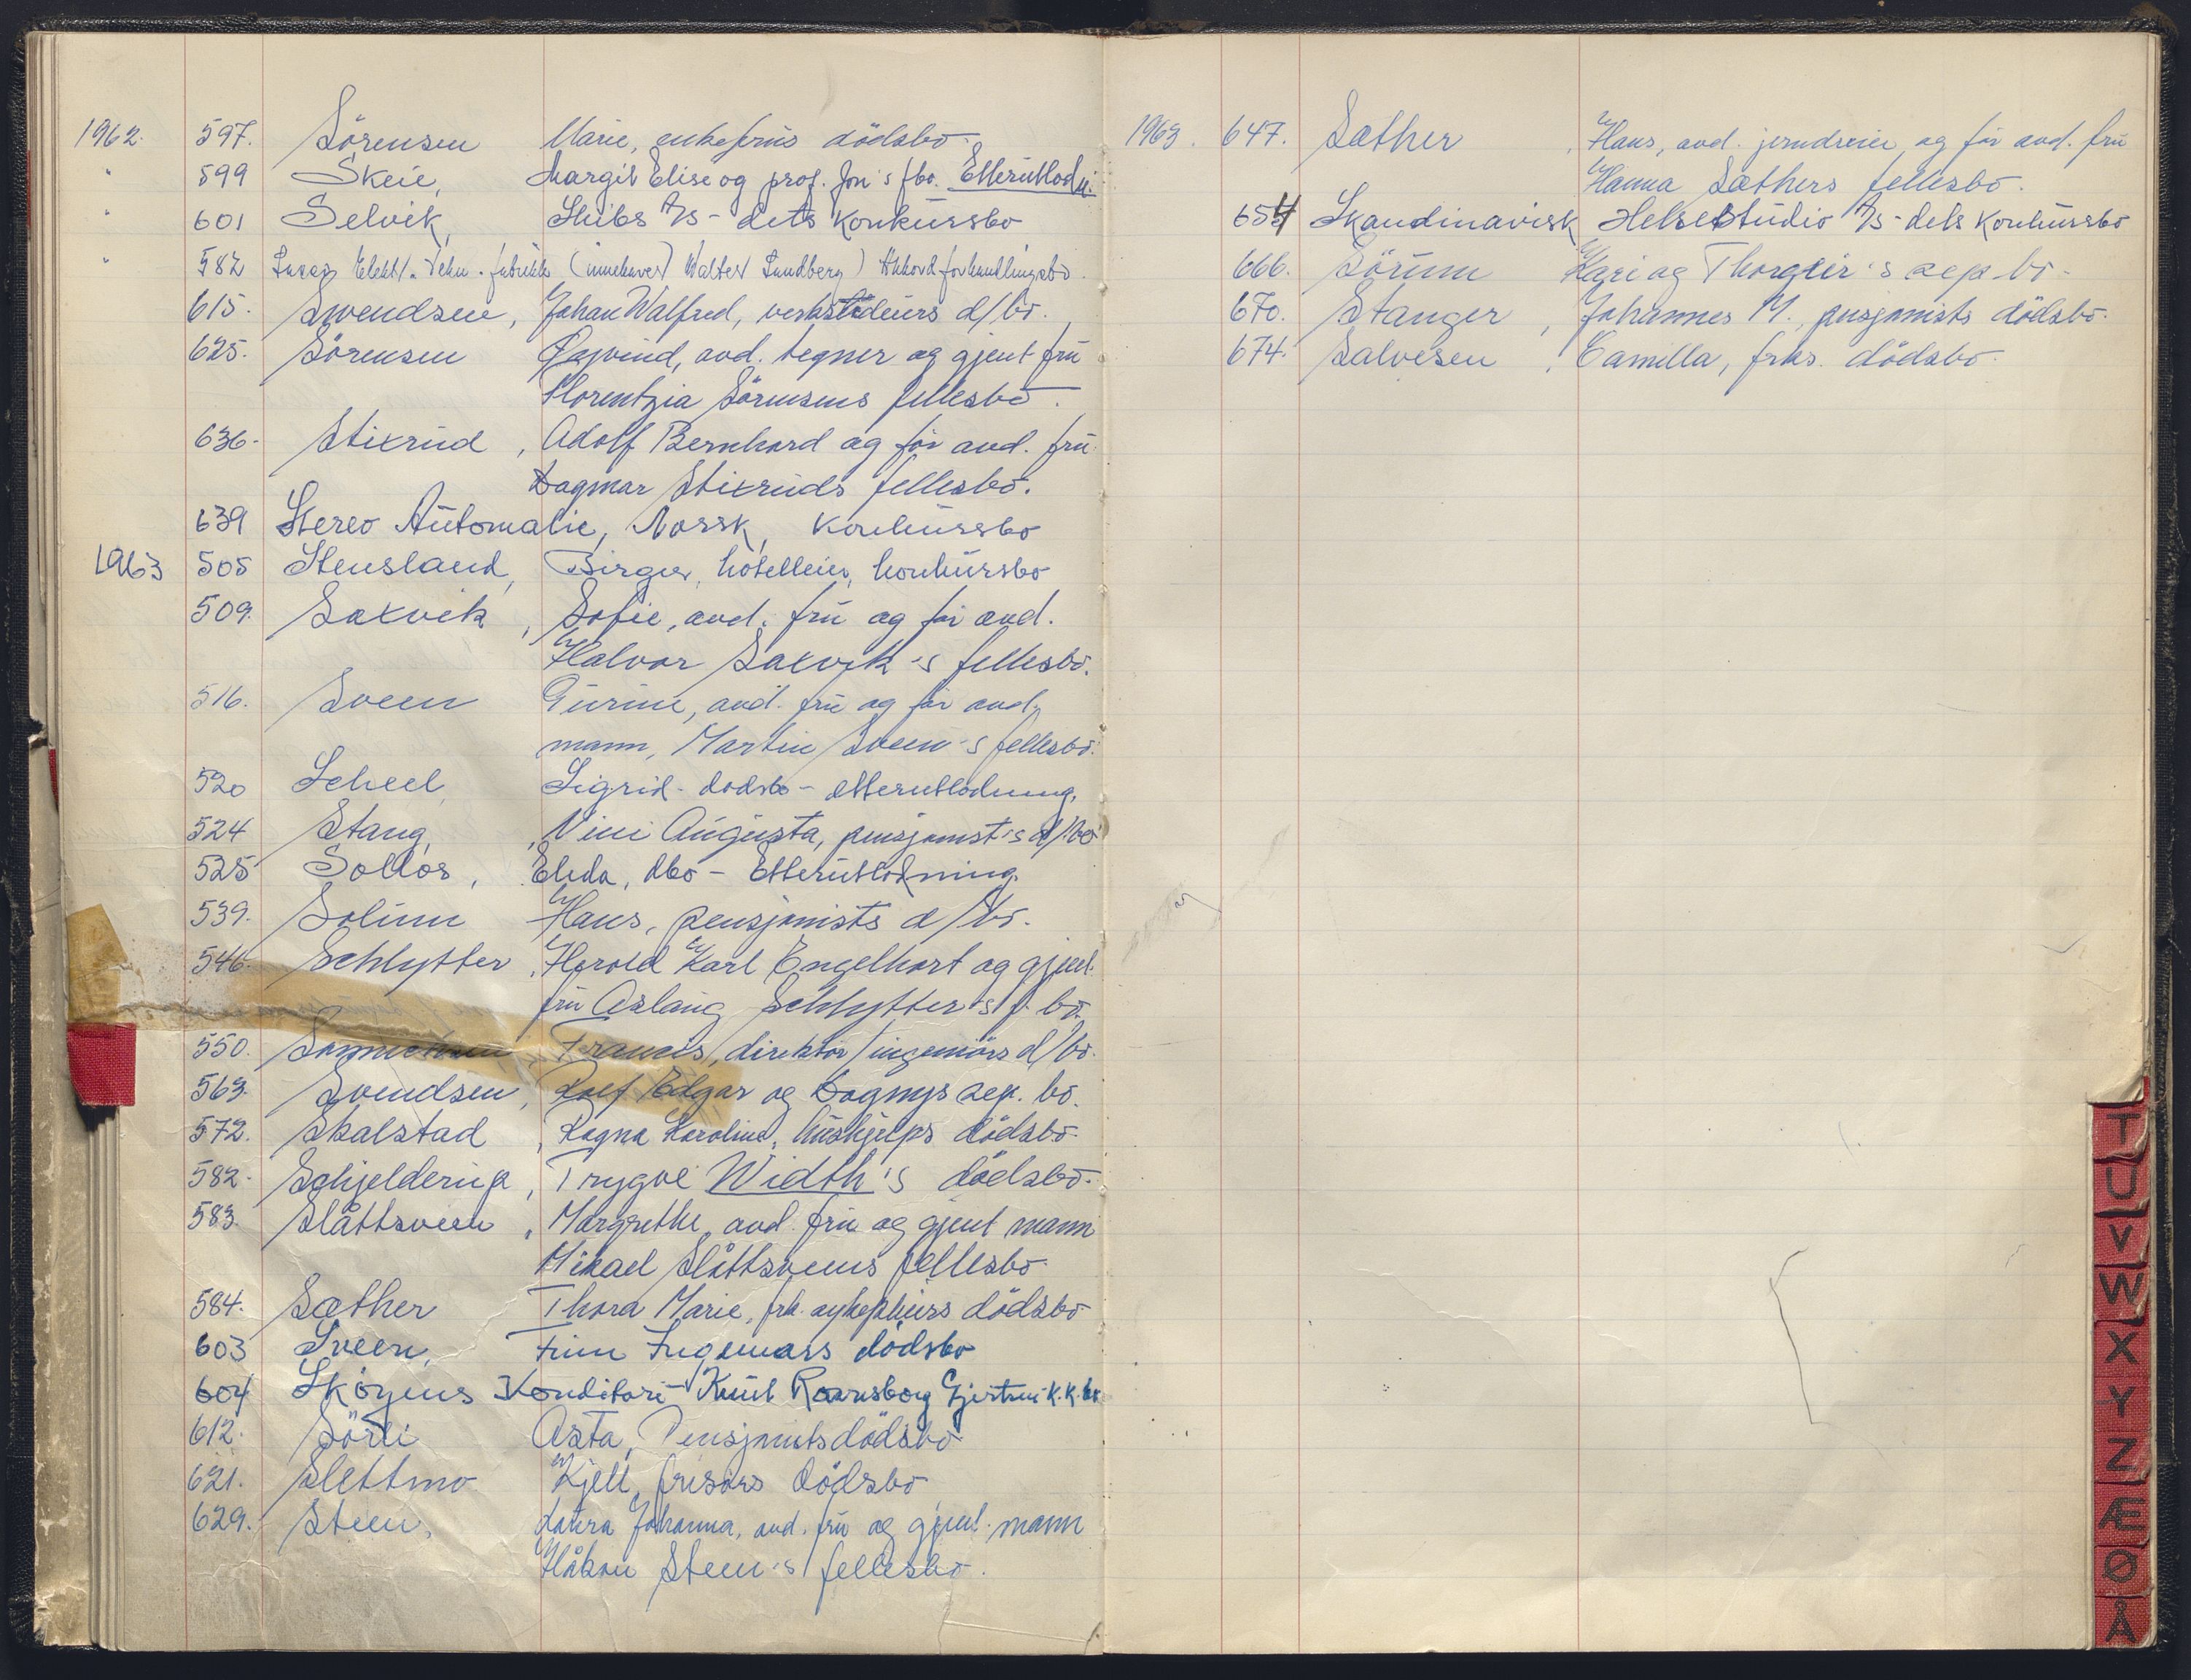 1962. 597. Sörensen Marie, enkefrus dödsbo.
" 599 Skeie, Margit Elise og prof. Jon's fbo. Etterutlodn.
" 601 Selvik, Skibs A/S - dets konkursbo
" 582 Elekt. - tekn. fabrikk (innehaver Walter Sundberg) Akkordforhandlingsbo.
615. Swendsen, Johan Walfred, d/bo.
625. Sörensen Øyvind, avd. tegner og gjenl. fru
Florentzia Sörensens fellesbo.
636. Stixrud, Adolf Bernhard og för avd. fru
Dagmar Stixruds fellesbo.
639 Stereo Automatic, Norsk, konkursbo
1963 505 Stensland, Birger, hotelleier, konkursbo
509. Saxvik, Sofie, avd. fru og för avd.
Halvor Saxvik's fellesbo.
516. Sveen Gurine, avd. fru og för avd.
mann, Martin Sveen's fellesbo.
520 Scheel, Sigrid - dødsbo - etterutlodning.
524 Stang, Vivi Augusta, pensjonist's d/bo
525 Sollös, Elida, dbo - Etterutlodning.
539. Solum Hans, pensjonists d/bo.
546. Schlytter, Harold Karl Engelhart og gjenl.
fru Aslaug Schlytter's f. bo.
550. Francis, direktör/ingeniörs d/bo.
563. Svendsen, Rolf Edgar og Dagnys sep. bo.
572. Skalstad, Ragna Karoline, hushjelps dödsbo.
582. Schjelderup, Trygve Width's dödsbo.
583. Slåttsveen, Margrethe, avd. fru og gjenl mann
Mikael Slåttsveens fellesbo.
584. Sæther Thora Marie, frk. sykepleiers dödsbo
603 Sveen, Finn Ingemars dödsbo
604 Skoyens Konditori v/Knut Ravnsborg Gjertsen k.k.bo
612. Sörli Asta, Pensjonists dödsbo
621. Slettmo Kjell, frisörs dödsbo
629. Steen, Laura Johanna, avd. fru og gjenl. mann
Håkon Steen's fellesbo.
1963. 647. Sæther, Hans, avd. og för avd. fru
Hanna Sæthers fellesbo.
654 Skandinavisk Helsestudio A/S - dets konkursbo
666. Sörum Kari og Thorgeir's sep bo.
670. Stanger, Johannes M., pensjonists dödsbo.
674. Salvesen, Camilla, frks. dödsbo.
T
U
V
W
X
Y
Z
Æ
Ø
Å